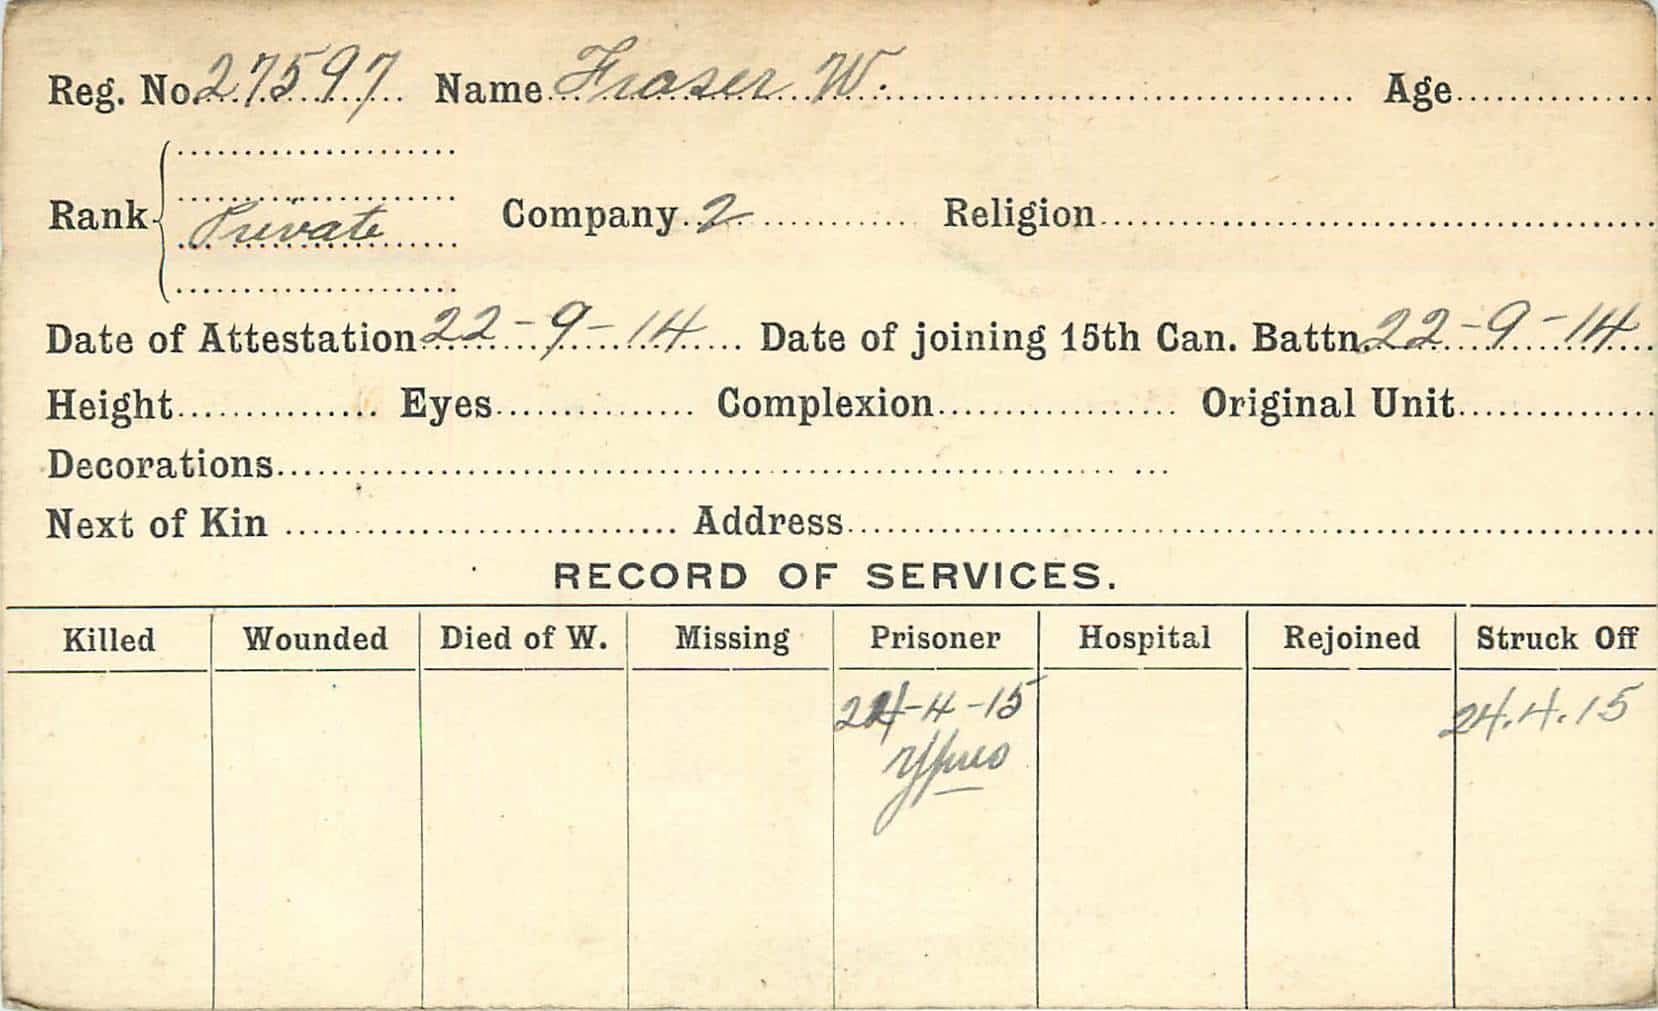 Reg. No. 27597 Name Fraser W. Age
Rank Private Company 2 Religion
Date of Attestation 22-9-14 Date of joining 15th Can. Battn. 22-9-14
Height Eyes Complexion Original Unit
Decorations
Next of Kin Address
RECORD OF SERVICES.
Killed Wounded Died of W. Missing Prisoner Hospital Rejoined Struck Off
24-4-15 24.4.15
Ypres